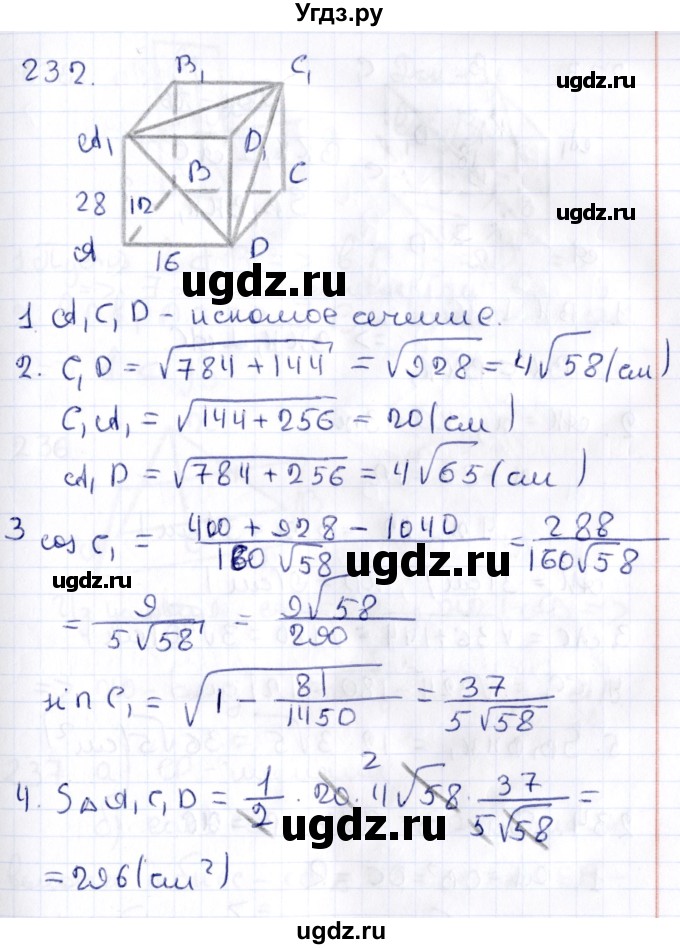 Угдз.ру
232.
B₁ C₁
ugdz.ru
A₁ D₁
B C
28 12
ugdz.ru
A 16 D
ugdz.ru
1. A₁C₁D - искомое сечение.
2. C₁D = √784+144 = √928 = 4√58 (см)
C₁A₁ = √144+256 = 20 (см)
A₁D = √784+256 = 4√65 (см)
3 cos C₁ = (400 + 928 - 1040)/(160 √58) = 288/(160√58)
ugdz.ru
ugdz.ru
ugdz.ru
= 9/(5√58) = 9√58/290
sin C₁ = √(1 - 81/1450) = 37/(5√58)
ugdz.ru
4. S△A₁C₁D = 1/2 · 20 · 4√58 · 37/(5√58) =
2
ugdz.ru
ugdz.ru
= 296 (см²)
ugdz.ru
ugdz.ru